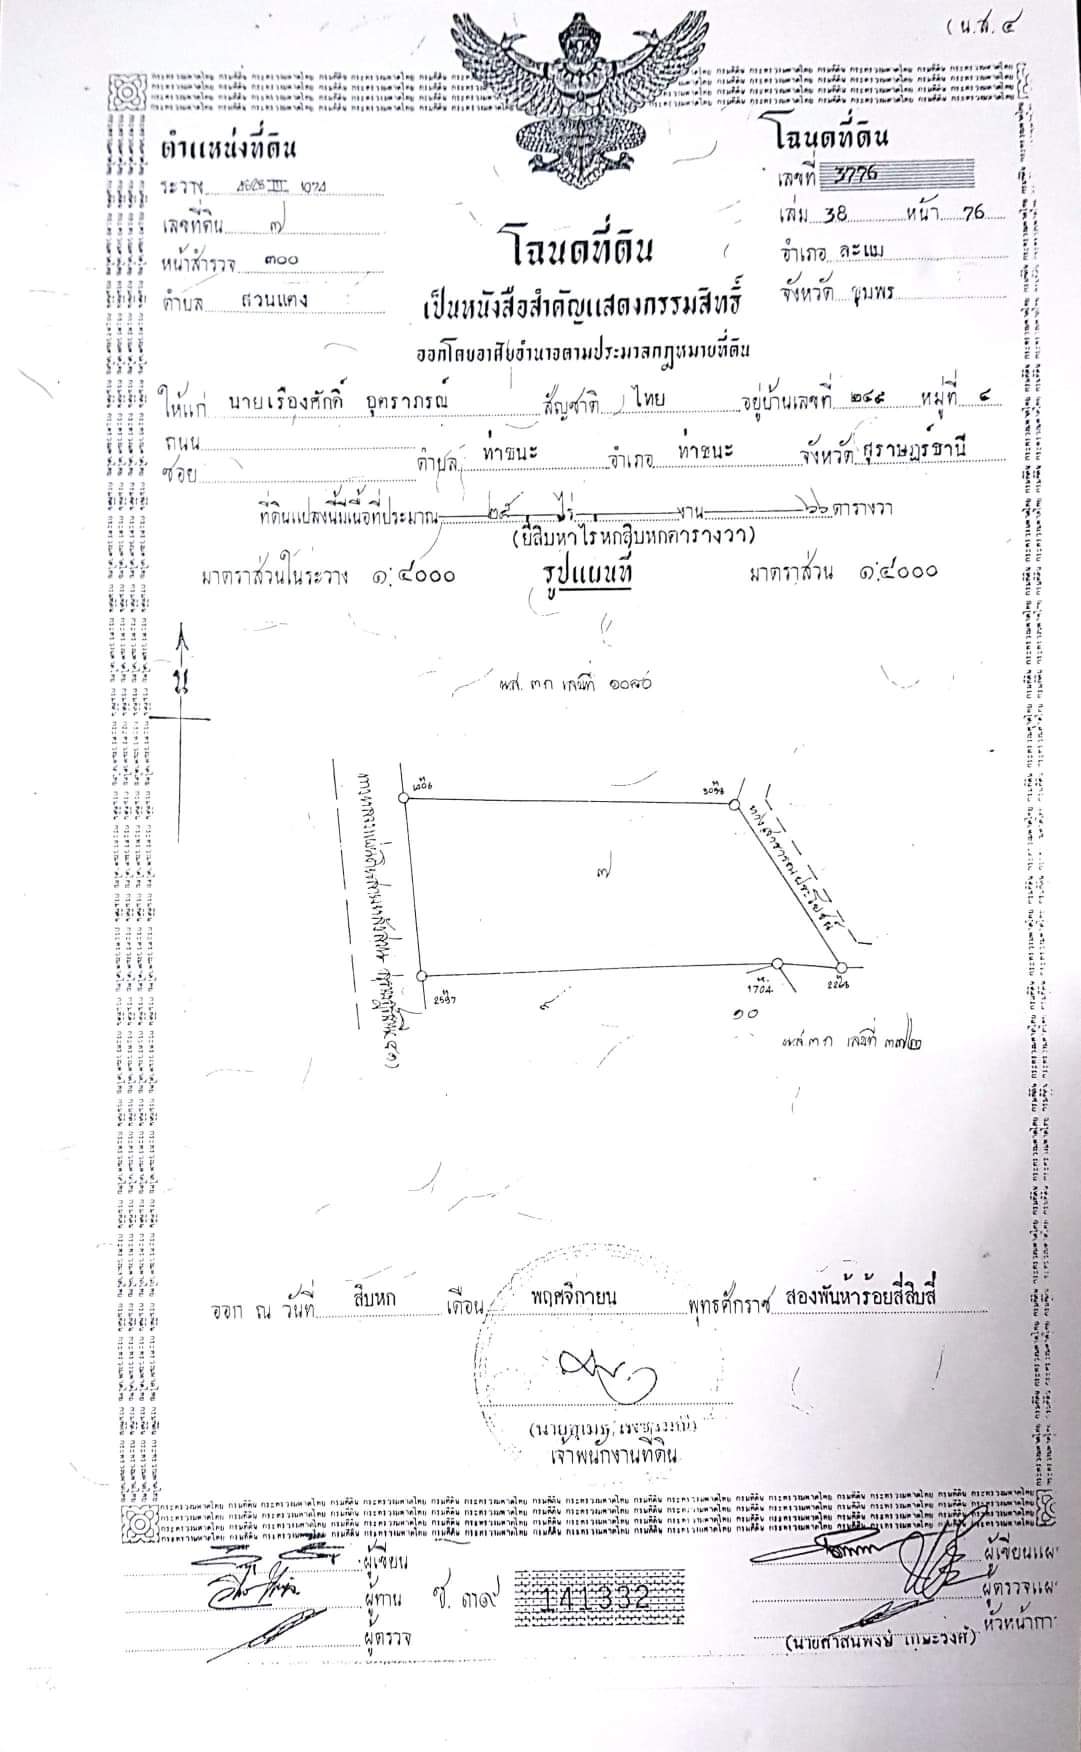 (น.ส.๔
ตำแหน่งที่ดิน
ระวาง
เลขที่ดิน ๗
หน้าสำรวจ ๓๐๐
ตำบล สวนแตง
โฉนดที่ดิน
เลขที่ 3776
เล่ม 38 หน้า 76
อำเภอ ละแม
จังหวัด ชุมพร
โฉนดที่ดิน
เป็นหนังสือสำคัญแสดงกรรมสิทธิ์
ออกโดยอาศัยอำนาจตามประมวลกฎหมายที่ดิน
ให้แก่ นายเรืองศักดิ์ อุตราภรณ์ สัญชาติ ไทย อยู่บ้านเลขที่ ๒๔๙ หมู่ที่ ๔
ถนน
ซอย ตำบล ท่าชนะ อำเภอ ท่าชนะ จังหวัด สุราษฎร์ธานี
ที่ดินแปลงนี้มีเนื้อที่ประมาณ ๒๕ ไร่ งาน ๖๖ ตารางวา
(ยี่สิบห้าไร่หกสิบหกตารางวา)
มาตราส่วนในระวาง ๑:๔๐๐๐ รูปแผนที่ มาตราส่วน ๑:๔๐๐๐
น
น.ส. ๓ ก เลขที่ ๑๐๘๐
๗
ทางสาธารณประโยชน์
2597
1704
๑๐
น.ส. ๓ ก เลขที่
ออก ณ วันที่ สิบหก เดือน พฤศจิกายน พุทธศักราช สองพันห้าร้อยสี่สิบสี่
เจ้าพนักงานที่ดิน
ผู้เขียน
ผู้ทาน
ผู้ตรวจ
ช. ๓๑๙ 141332
ผู้เขียนแผ
ผู้ตรวจแผ
หัวหน้ากา
(นายศาสนพงษ์ เกษะวงศ์)